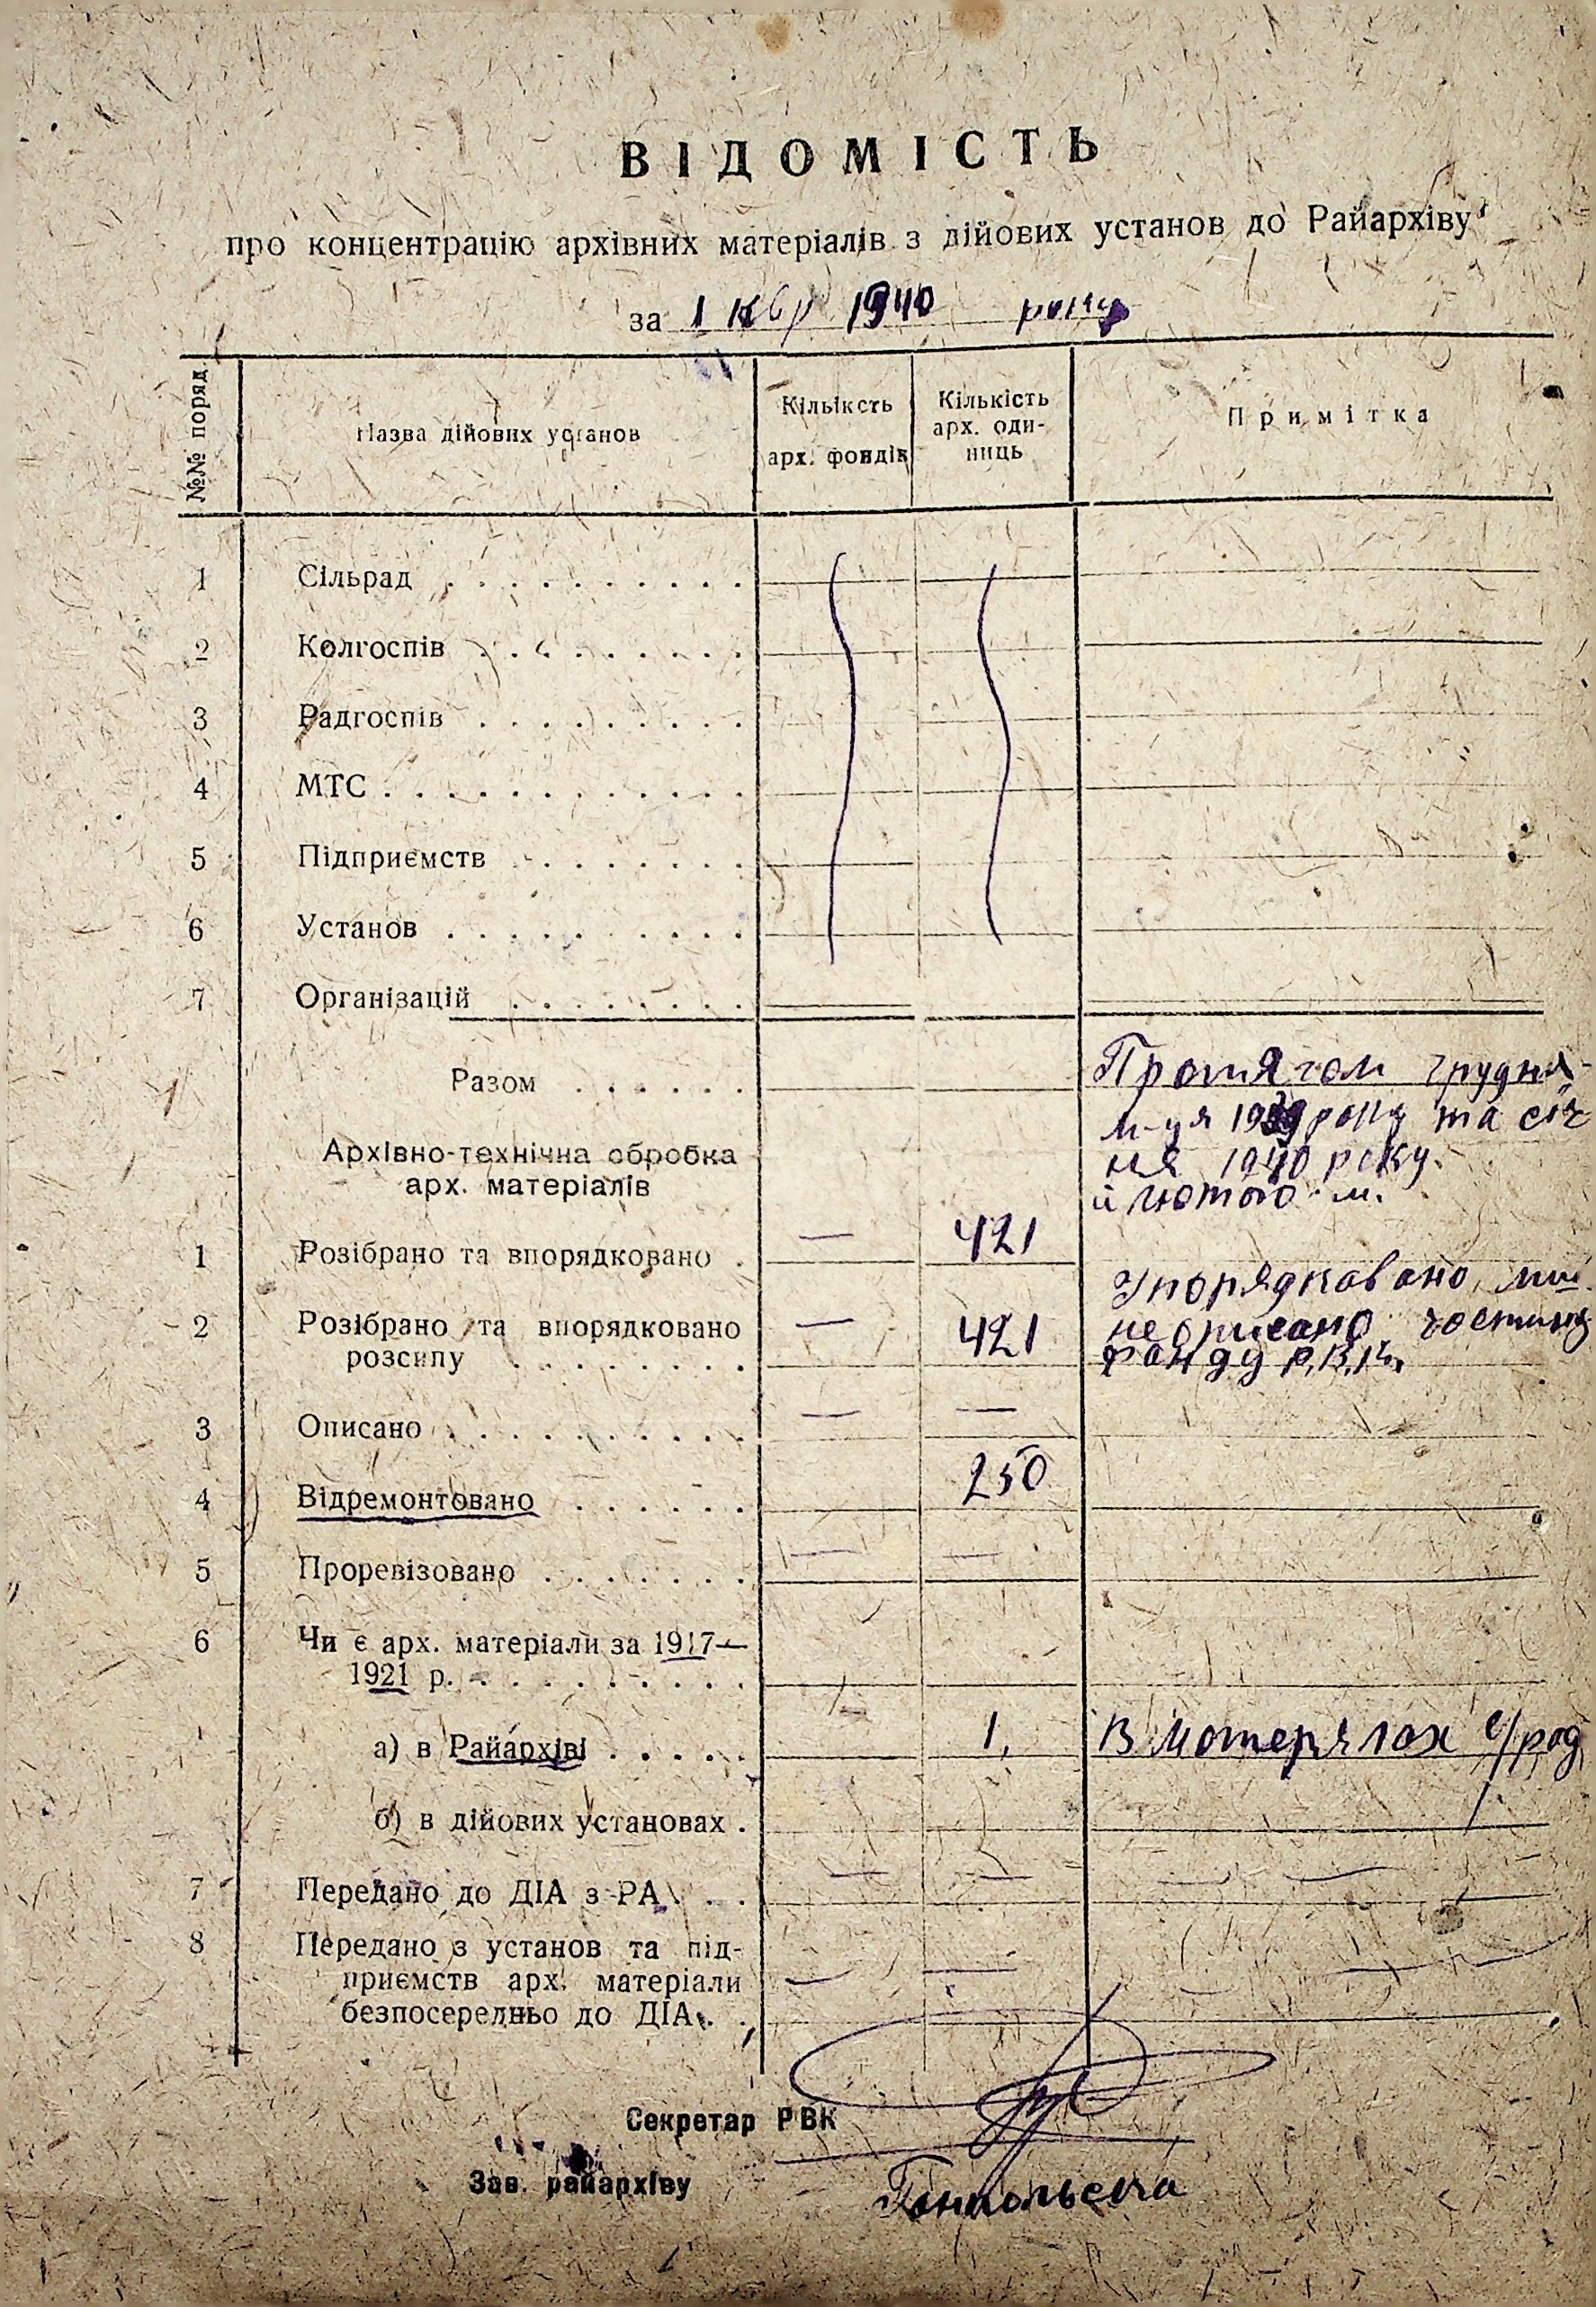 ВІДОМІСТЬ
про концентрацію архівних матеріалів з дійових установ до Райархіву
за 1 кв 1940 року
№№ поряд.
Назва дійових установ
Кількість
арх. фондів
Кількість
арх. оди-
ниць
Примітка
1 Сільрад
2 Колгоспів
3 Радгоспів
4 МТС
5 Підприємств
6 Установ
7 Організацій
Разом Протягом грудня-
м-ця 1939 року та січ
Архівно-технічна обробка ня 1940 року.
арх. матеріалів й лютого м.
1 Розібрано та впорядковано — 421
Упорядковано
2 Розібрано та впорядковано — 421 не описано частину
розсипу фонду Р.В.К.
3 Описано — —
4 Відремонтовано 250
5 Проревізовано — —
6 Чи є арх. матеріали за 1917—
1921 р.
а) в Райархіві — 1, В матерялах с/рад
б) в дійових установах
7 Передано до ДІА з РА — — — —
8 Передано з установ та під-
приємств арх. матеріали — — —
безпосередньо до ДІА
Секретар РВК
Зав. райархіву